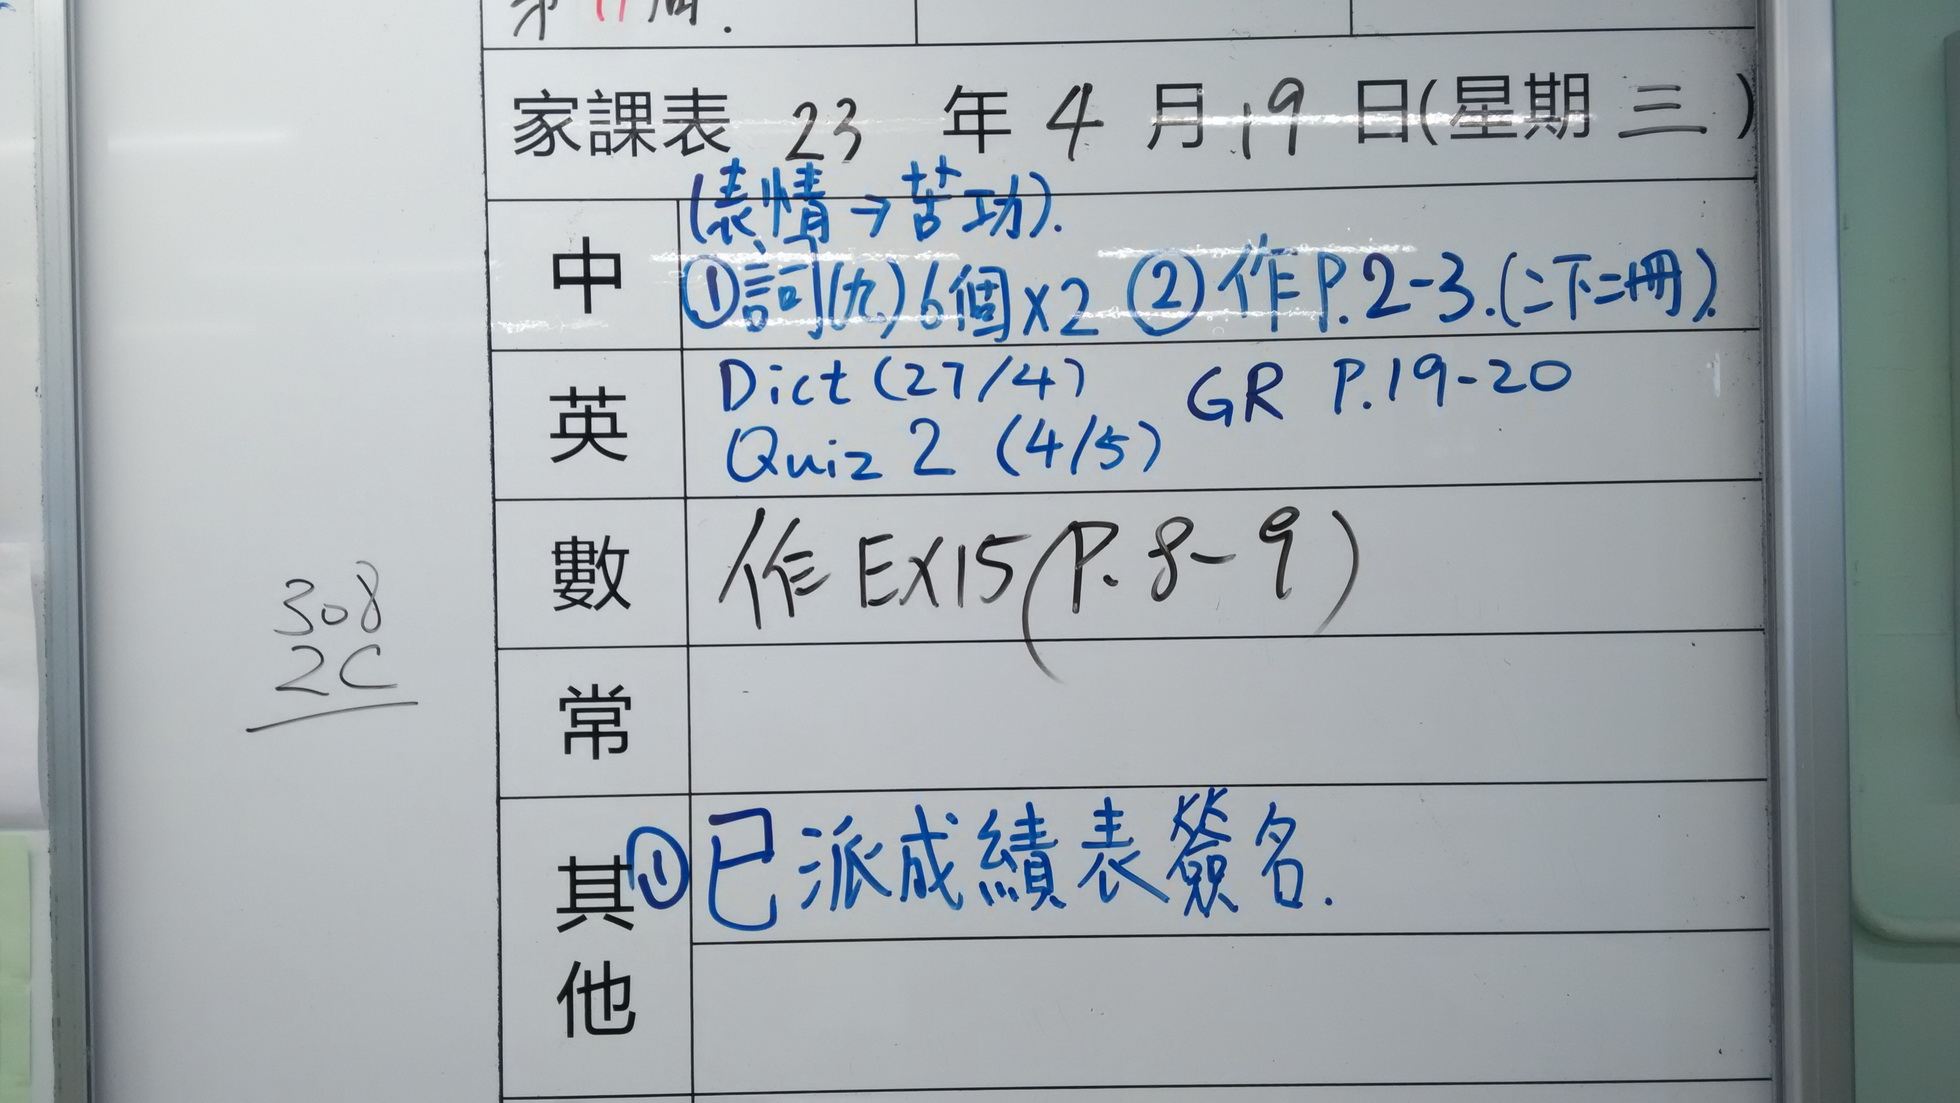 第11周.
家課表 23 年 4 月 19 日(星期 三 )
(表情→苦功).
中 ①詞(九)6個x2 ②作P.2-3.(二下二冊).
英 Dict (27/4) GR P.19-20
Quiz 2 (4/5)
數 作 EX15(P.8-9)
308
2C
常
其他 ①已派成績表簽名.